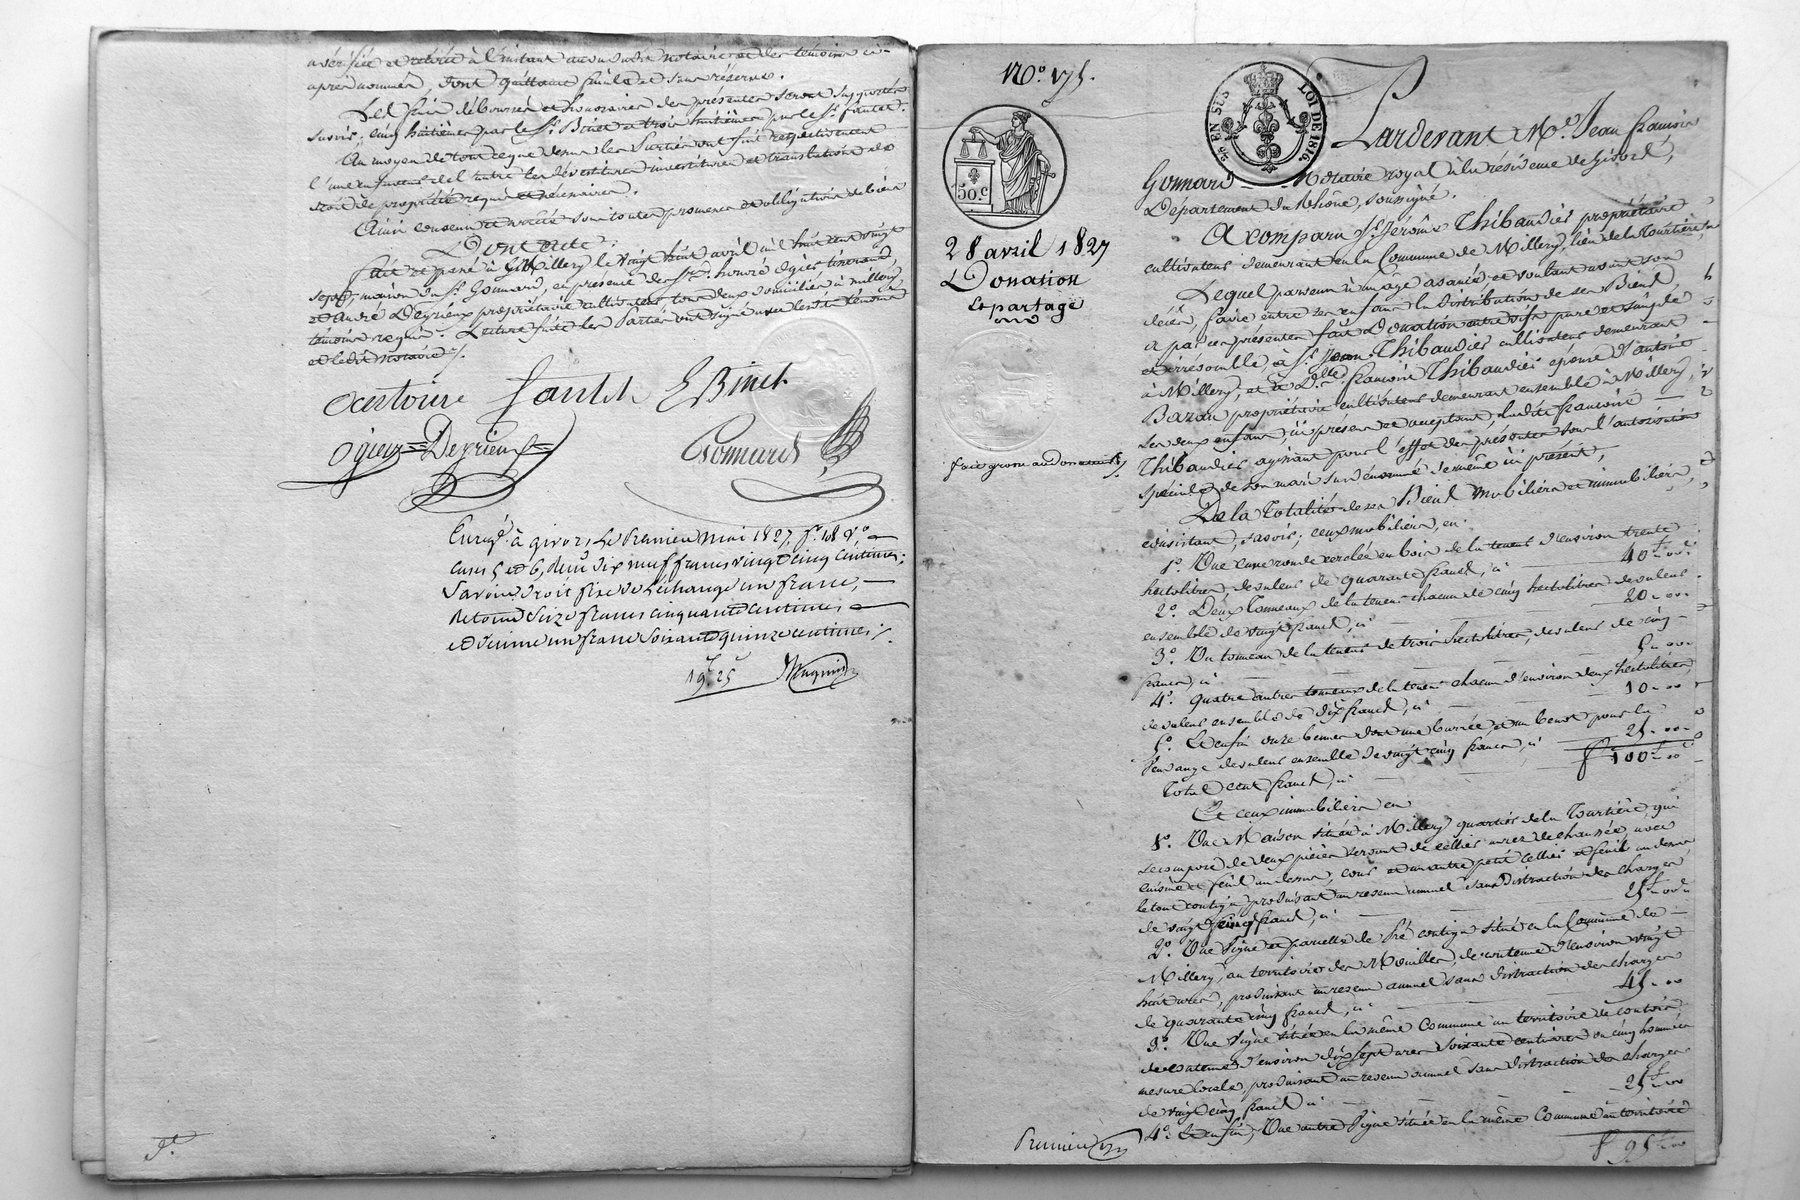 après nommés, dont quittance finale et sans réserve.
Les frais déboursés et honoraires des présentes seront supportés
savoir, cinq huitièmes par le Sr. Binet et trois huitièmes par le Sr. fautet.
Au moyen de tout ce que dessus les Parties ont fait respectivement
l'une en faveur de l'autre les dévestitures investitures et translations de
droit de propriété requises et nécessaires.
Ainsi convenu et arrêté sous toutes promesses et obligations de biens
Dont Acte.
fait et passé à Millery le vingt huit avril mil huit cent vingt
sept, maison du Sr. Gonnard, en présence de Srs. honoré ogier
et André Deyrieux propriétaire cultivateur tous deux domiciliés à millery,
témoins requis. Lecture faite les Parties ont signé avec lesdits témoins
et ledit notaire ./.
fautet EBinet
ogier = Deyrieux =
Gonnard
Enregé. à givors, Le Premier mai 1827, fo. 108 Vo.
cases 5 et 6, dix neuf francs vingt cinq centimes;
Savoir, droit fixe de l'échange un franc,
Retour Seize francs cinquante centimes,
et décime un franc Soixante quinze centimes ./.
19f. 25
No. 175.
50.c
EN SUS
LOI DE 1816.
28 avril 1827
Donation
et partage
fait grosse au Donataire ./.
Pardevant Me. Jean françois
Gonnard Notaire royal à la résidence de Givors,
Département du Rhône, soussigné.
A comparu Sr. Jérôme Thibaudier propriétaire
cultivateur demeurant en la Commune de Millery, lieu de la Tourtière,
Lequel parvenu à un âge avancé et voulant avant son
décès, faire entre ses enfans la distribution de ses Biens,
a par ces présentes fait Donation entre vifs pure et simple
et irrévocable, à Sr. Jean Thibaudier cultivateur demeurant
à Millery, et à Dlle. françoise Thibaudier épouse d'antoine
Bazan propriétaire cultivateur demeurant ensemble à Millery,
ses deux enfans, ici présens et acceptant, ladite françoise
Thibaudier agissant pour l'effet des présentes sous l'autorisation
spéciale de son mari susdénommé de même ici présent,
De la Totalité de ses Biens mobiliers et immobiliers,
consistant, savoir; ceux mobiliers, en
1o. Une cuve ronde cerclée en bois de la teneur d'environ trente
hectolitres, de valeur de quarante francs, ci 40f. 00c.
2o. Deux tonneaux de la teneur chacun de cinq hectolitres de valeur
ensemble de vingt francs, ci 20. 00.
3o. Un tonneau de la teneur de trois hectolitres, de valeur de cinq
francs, ci 5. 00.
4o. Quatre autres tonneaux de la teneur chacun d'environ deux hectolitres
de valeur ensemble de dix francs, ci 10. 00
5o. Et enfin onze bennes dont une barrée, et un benot pour la
Vendange de valeur ensemble de vingt cinq francs, ci 25. 00.
Total cent francs, ci f 100f. 00c
Et ceux immobiliers en
1o. Une Maison située à Millery quartier de la Tourtière, qui
se compose de deux pièces servant de cellier au rez de chaussée, avec
cuisine et fenil au dessus, cour et un autre petit cellier et fenil au dessus
le tout contigu, produisant un revenu annuel sans distraction des charges
de vingt cinq francs, ci 25f. 00c
2o. Une Vigne et parcelle de Pré contigu situé en la Commune de
Millery, au territoire des Mouilles, de contenue d'environ vingt
huit ares, produisant un revenu annuel sans distraction des charges
de quarante cinq francs, ci 45. 00
3o. Une Vigne située en la même Commune au territoire de
de contenue d'environ dix sept ares Soixante centiares ou cinq hommées
mesure locale produisant un revenu annuel sans distraction des charges
de vingt cinq francs ci 25f. 00
4o. Et enfin, Une autre Vigne située en la même Commune au territoire
f 95f. 00
Premier